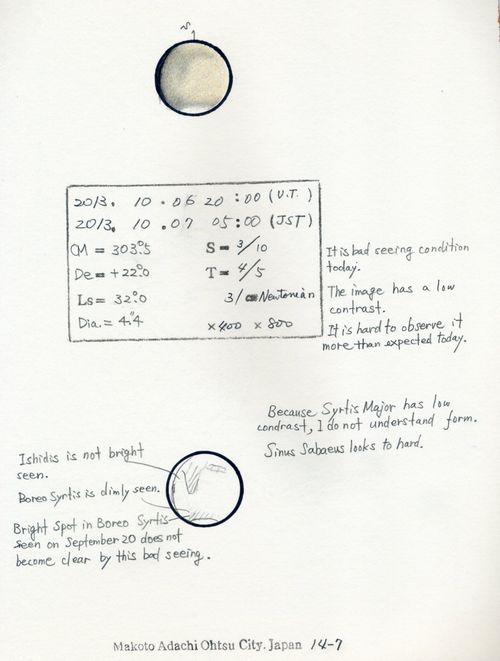 2013. 10 . 06 20 : 00 (U.T.)
2013. 10 . 07 05 : 00 (JST)
CM = 303°.5 S = 3/10
De = +22°.0 T = 4/5
Ls = 32°.0 31 cm Newtonian
Dia. = 4".4 ×400 ×800
It is bad seeing condition
today.
The image has a low
contrast.
It is hard to observe it
more than expected today.
Because Syrtis Major has low
condrast, I do not understand form.
Sinus Sabaeus looks to hard.
Ishidis is not bright
seen.
Boreo Syrtis is dimly seen.
Bright Spot in Boreo Syrtis
seen on September 20 does not
become clear by this bad seeing.
Makoto Adachi Ohtsu City. Japan 14-7